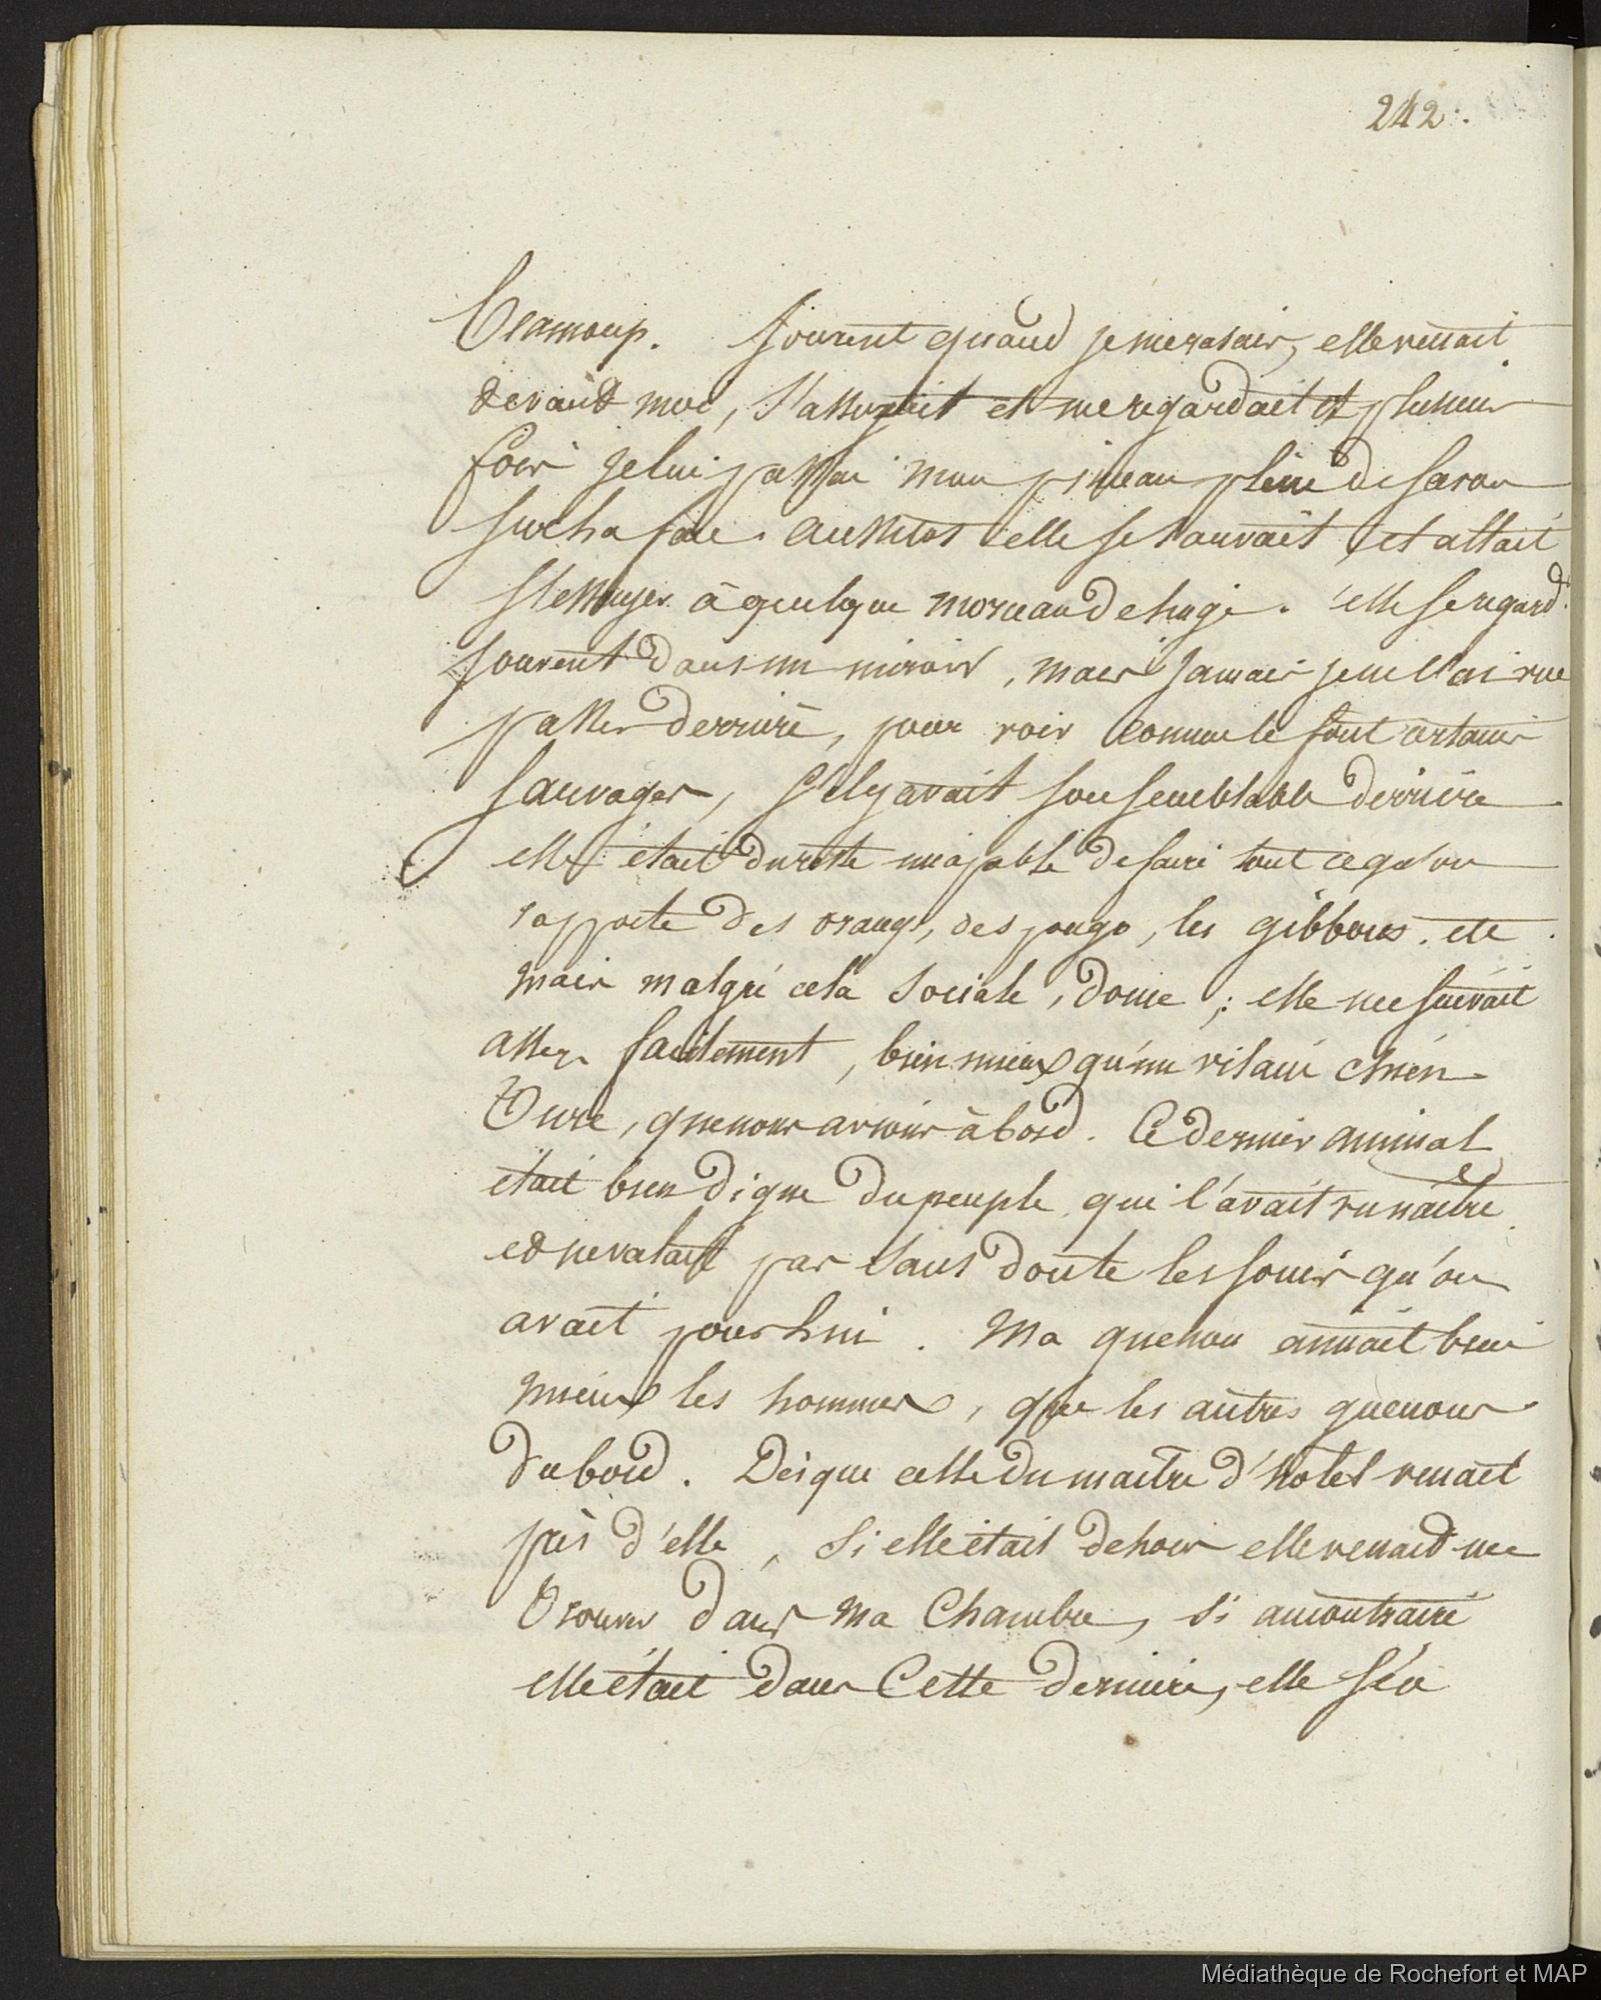 242.
Beaucoup. Souvent quand je me rasais, elle venait
devant moi, s'asseyait et me regardait et plusieurs
fois je lui passai mon pinceau plein de savon
sur la face. aussitot elle se sauvait, et allait
s'essuyer à quelque morceau de linge. elle se regard.
souvent dans un miroir, mais jamais je ne l'ai vue
passer derrière, pour voir comme le font certains
sauvages, s'il y avait son semblable derrière
elle était du reste incapable de faire tout ce qu'on
rapporte des orangs, des pongo, les gibbons. etc.
mais malgré cela sociale, douce ; elle me suivait
assez facilement, bien mieux qu'un vilain chien
Turc, que nous avions à bord. Ce dernier animal
était bien digne du peuple qui l'avait vu naitre
et ne valait pas sans doute les soins qu'on
avait pour lui. Ma guenon aimait bien
mieux les hommes, que les autres guenons
du bord. Dès que celle du maitre d'hotel venait
près d'elle, si elle était dehors elle venait me
trouver dans ma chambre, si au contraire
elle était dans cette dernière, elle s'en
Médiathèque de Rochefort et MAP